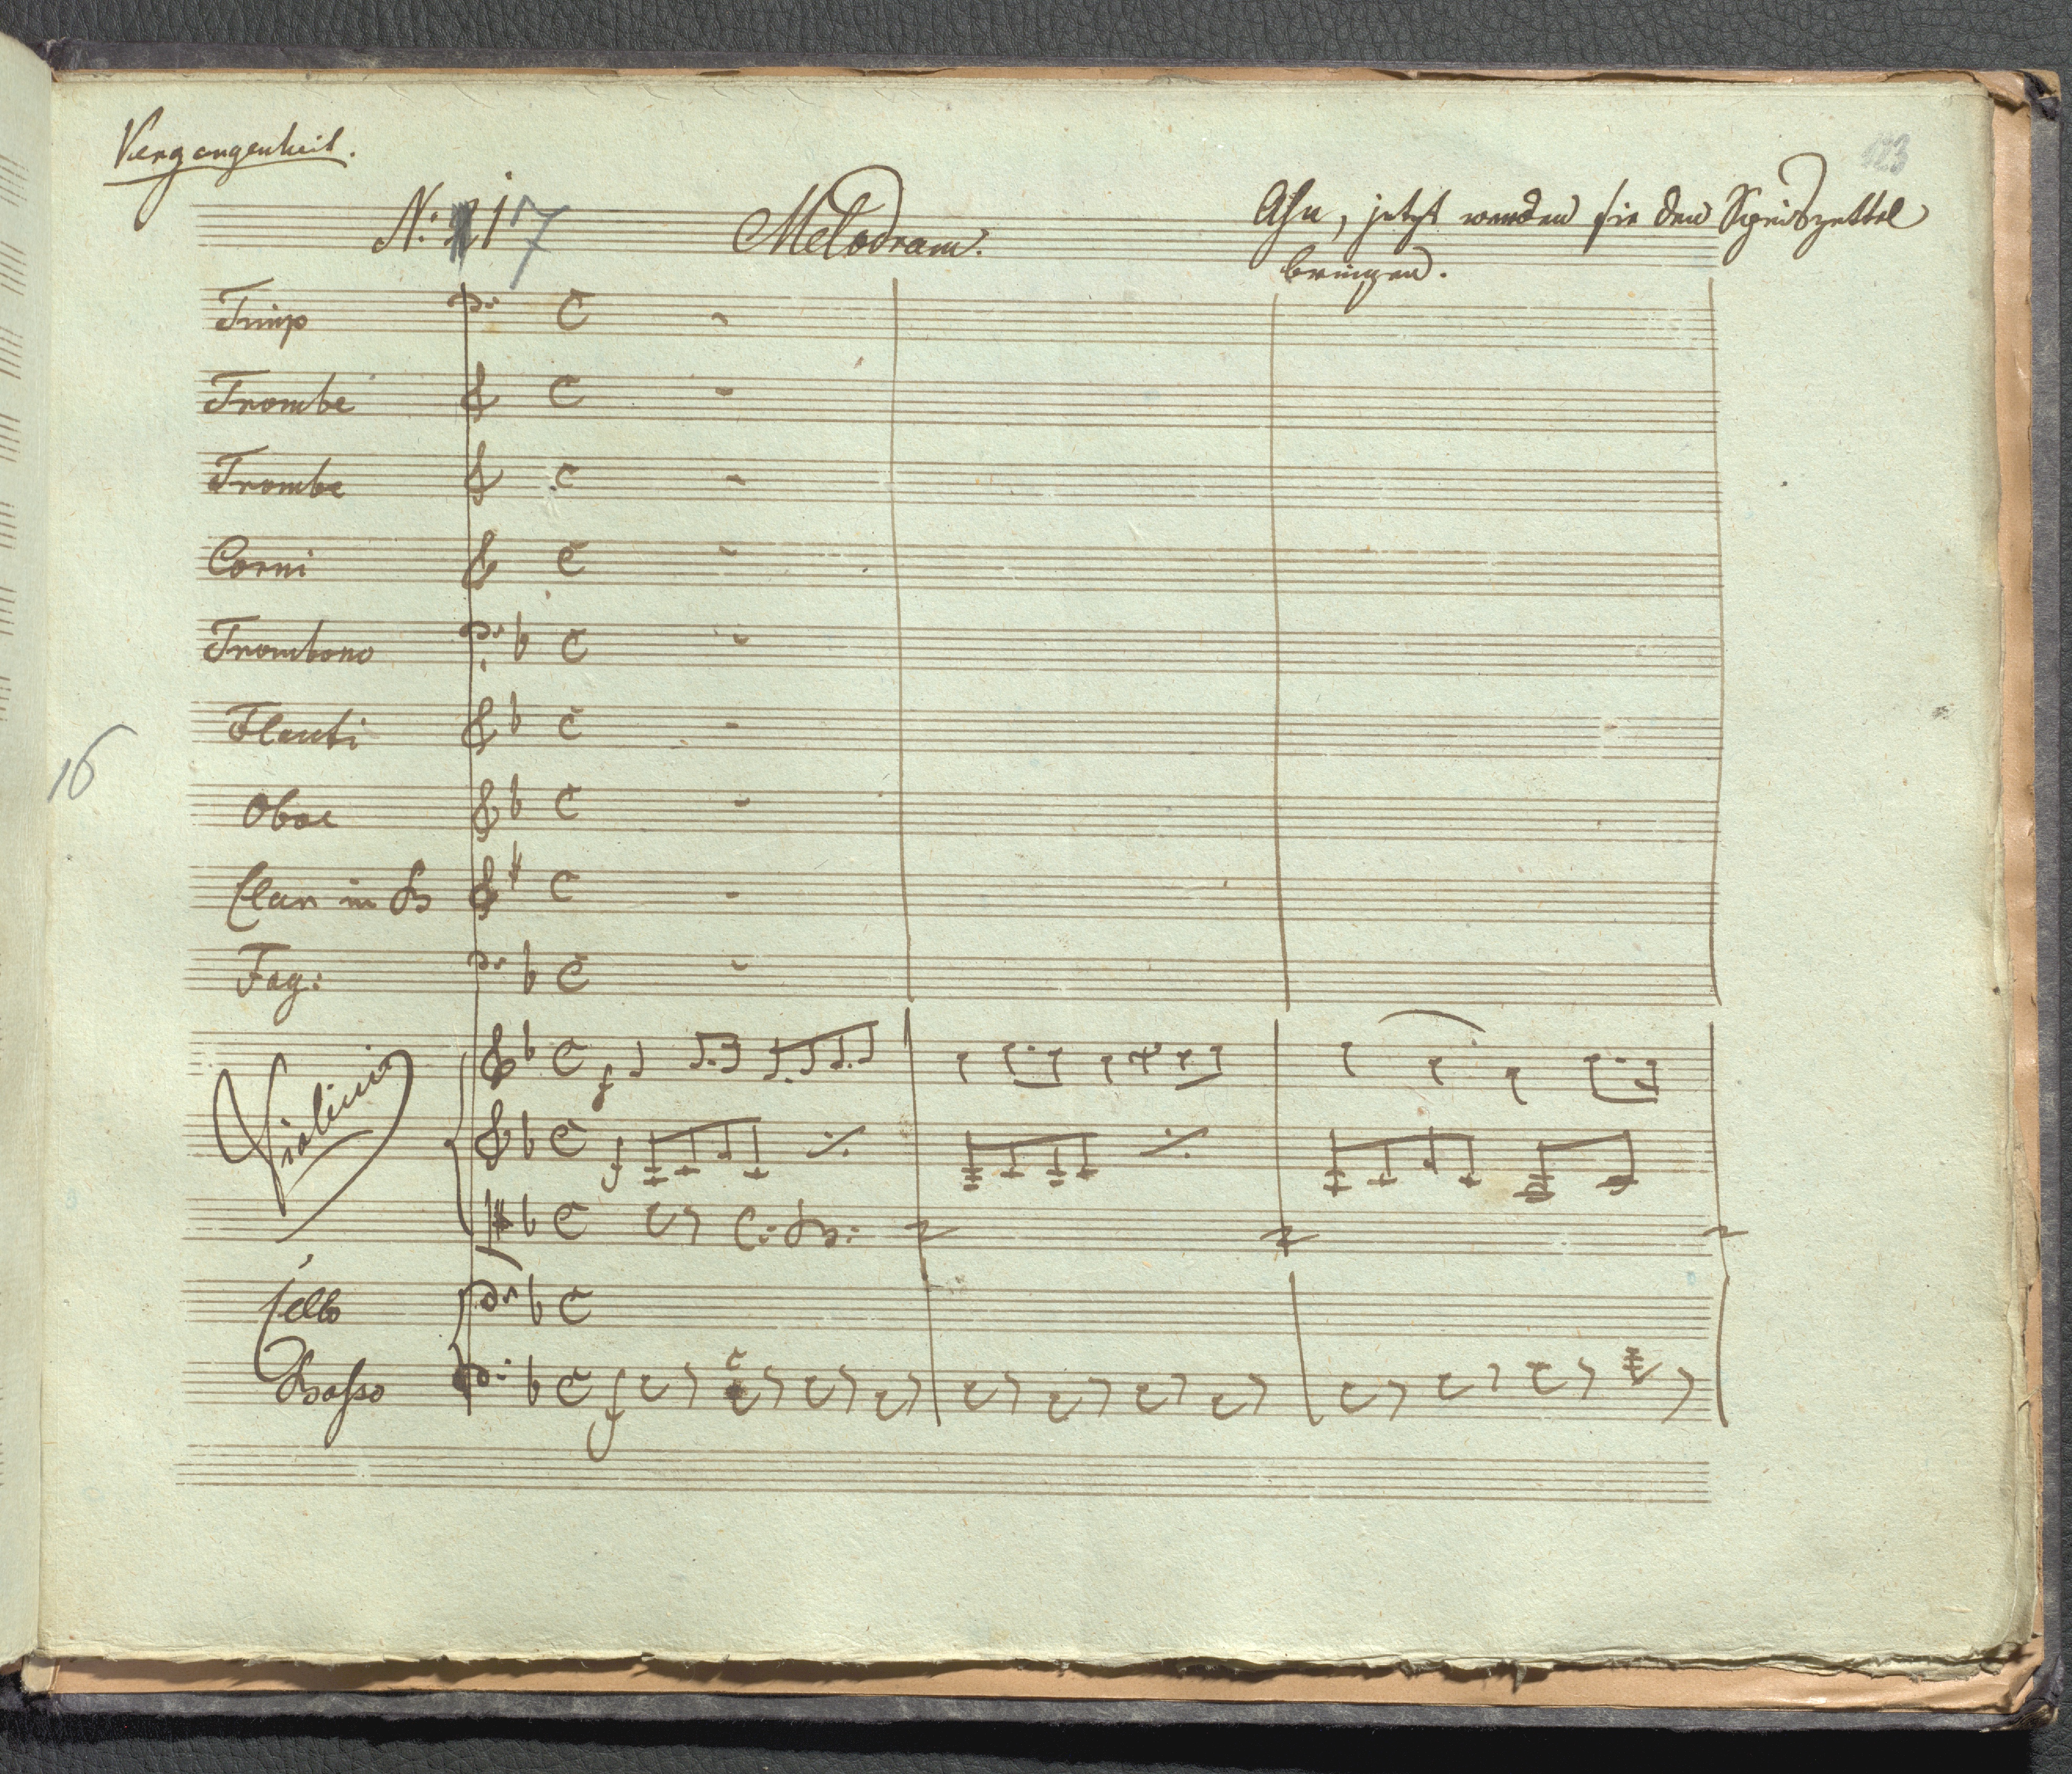 Vergangenheit.
123
N: 17 Melodram. Aha, jetzt werden sie den Speiszettel
bringen.
Timp
Trombe
Trombe
Corni
Trombono
Flauti
16
Oboe
Clar in B
Fag:
Violini
f
f
C: B:
Cello
Basso
f